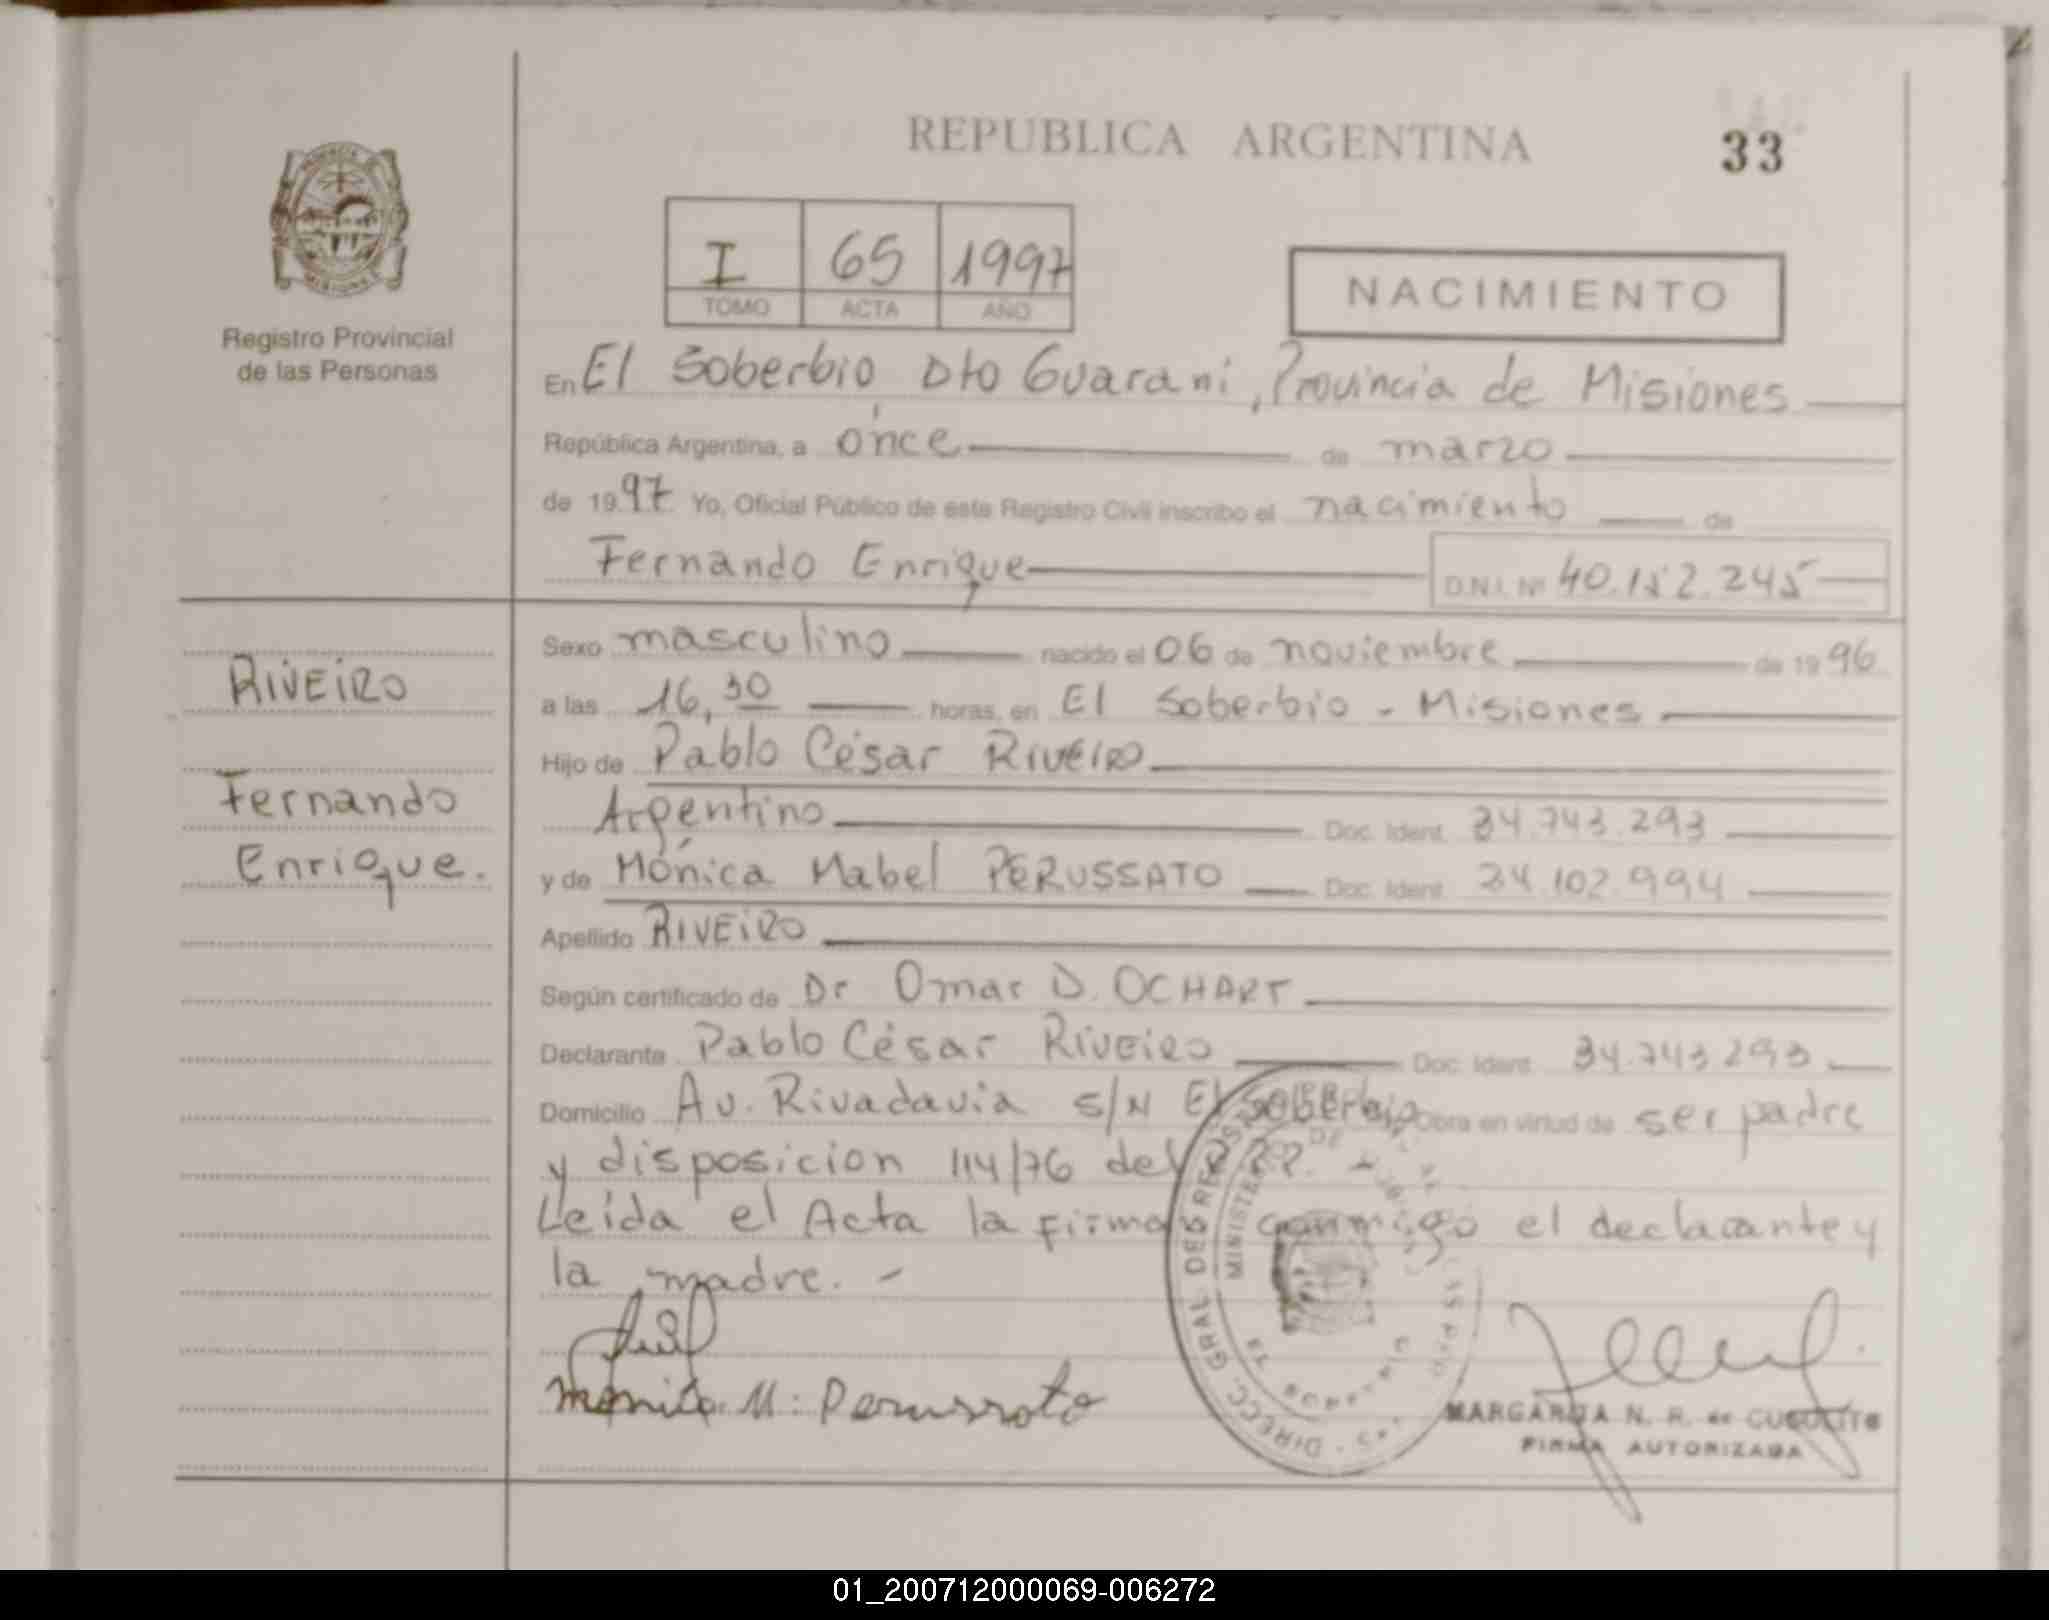 REPUBLICA ARGENTINA
33
I 65 1997
TOMO ACTA AÑO
NACIMIENTO
Registro Provincial
de las Personas
En El Soberbio Dto Guarani, Provincia de Misiones
República Argentina, a once de marzo
de 1997 Yo, Oficial Público de este Registro Civil inscribo el nacimiento de
Fernando Enrique D.N.I. Nº 40.152.245
RIVEIRO
Fernando
Enrique.
Sexo masculino nacido el 06 de noviembre de 1996
a las 16,30 horas, en El Soberbio - Misiones
Hijo de Pablo César RIVEIRO
Argentino Doc. Ident. 34.743.293
y de Mónica Mabel PERUSSATO Doc. Ident. 34.102.994
Apellido RIVEIRO
Según certificado de Dr Omar D. OCHART
Declarante Pablo César RIVEIRO Doc. Ident. 34.743.293
Domicilio Av. Rivadavia S/N El Soberbio Obra en virtud de ser padre
y disposicion 114/76 del
Leída el Acta la firman conmigo el declarante y
la madre. -
Monica M: Perussato
DIRECC. GRAL. DEL
MARGARITA N. R. de
FIRMA AUTORIZADA
01_200712000069-006272